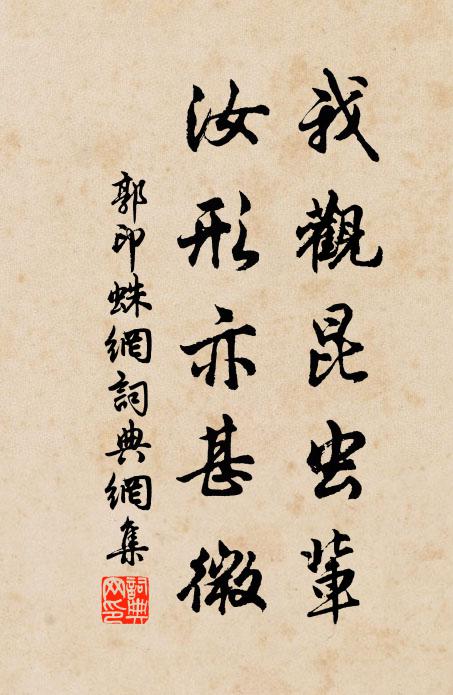 我觀昆虫軰
汝形亦甚微
郭印蛛網詞典網集
詞典网印